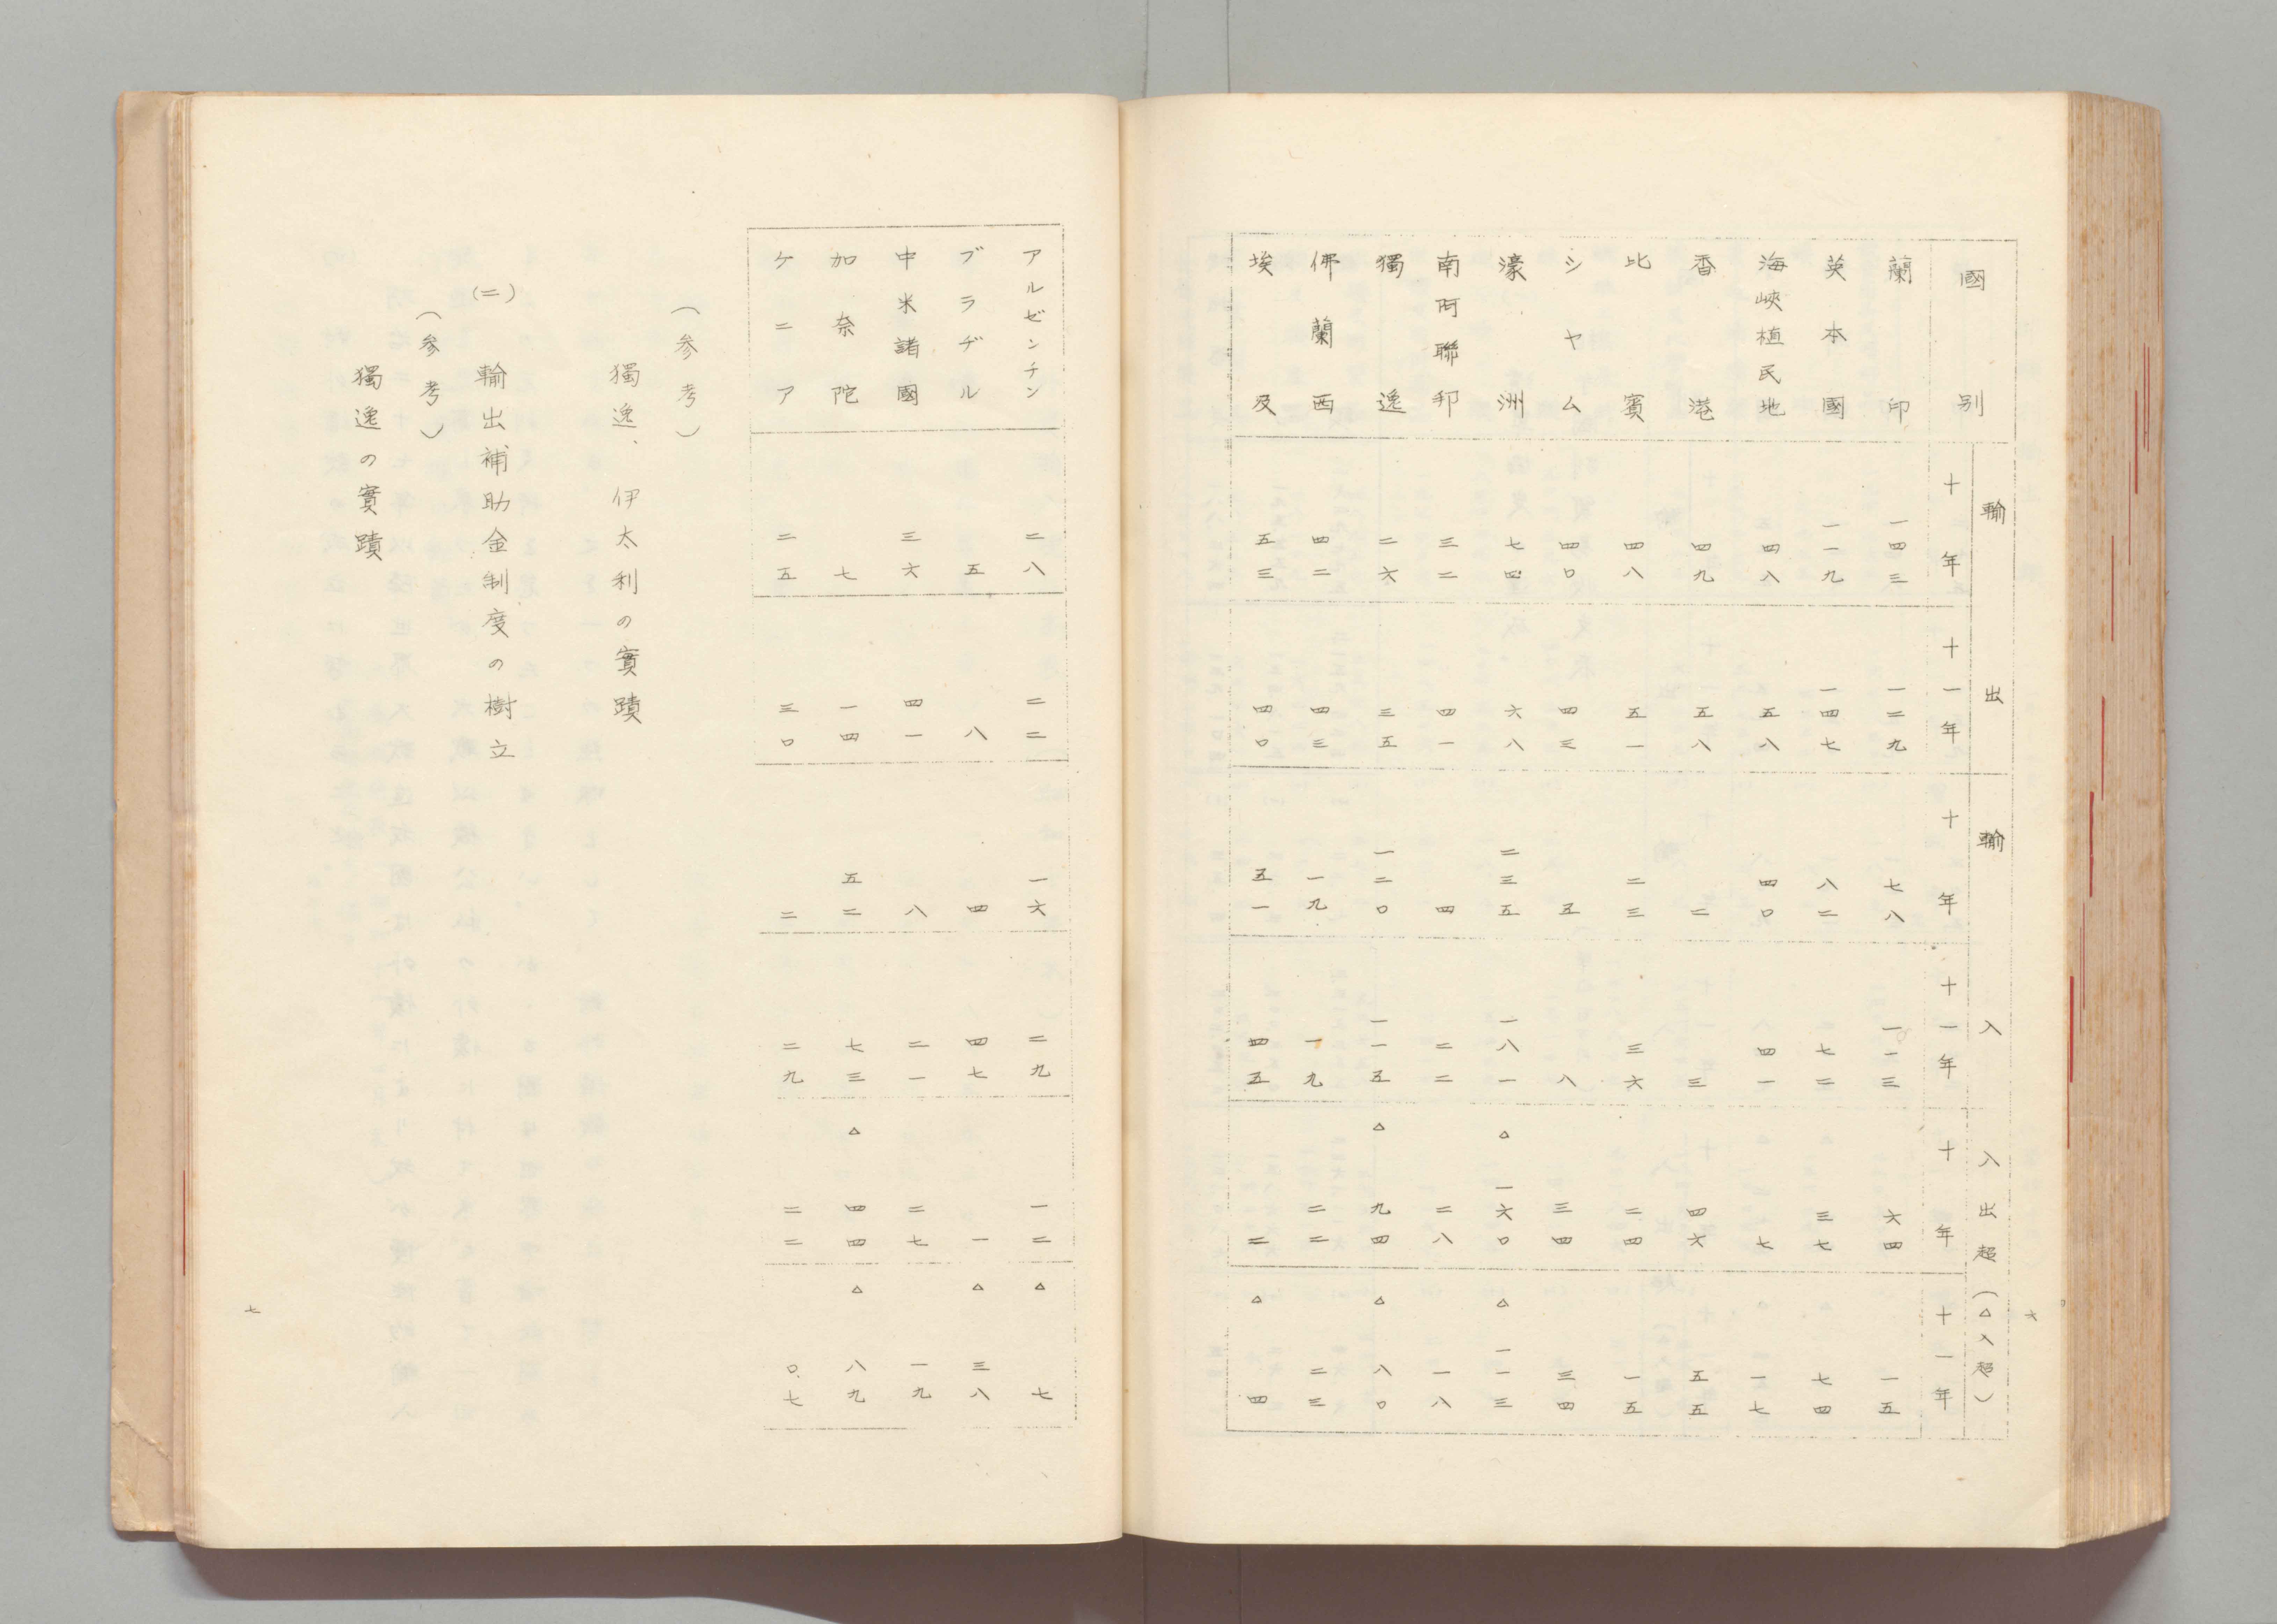 六
國別 輸出 輸入 入出超(△入超)
十年 十一年 十年 十一年 十年 十一年
蘭印 一四三 一二九 七八 一一三 六四 一五
英本國 一一九 一四七 八二 七二 三七 七四
海峽植民地 四八 五八 四〇 四一 七 一七
香港 四九 五八 二 三 四六 五五
比賓 四八 五一 二三 三六 二四 一五
シヤム 四〇 四三 五 八 三四 三四
濠洲 七四 六八 二三五 一八一 △一六〇 △一一三
南阿聯邦 三二 四一 四 二二 二八 一八
獨逸 二六 三五 一二〇 一一五 △九四 △八〇
佛蘭西 四二 四三 一九 一九 二二 二三
埃及 五三 四〇 五一 四五 二 △四
アルゼンチン 二八 二二 一六 二九 一二 △七
ブラヂル 五 八 四 四七 一 △三八
中米諸國 三六 四一 八 二一 二七 一九
加奈陀 七 一四 五二 七三 △四四 △八九
ケニア 二五 三〇 二 二九 二二 〇.七
(参考)
獨逸、伊太利の實蹟
(二) 輸出補助金制度の樹立
(参考)
獨逸の實蹟
七